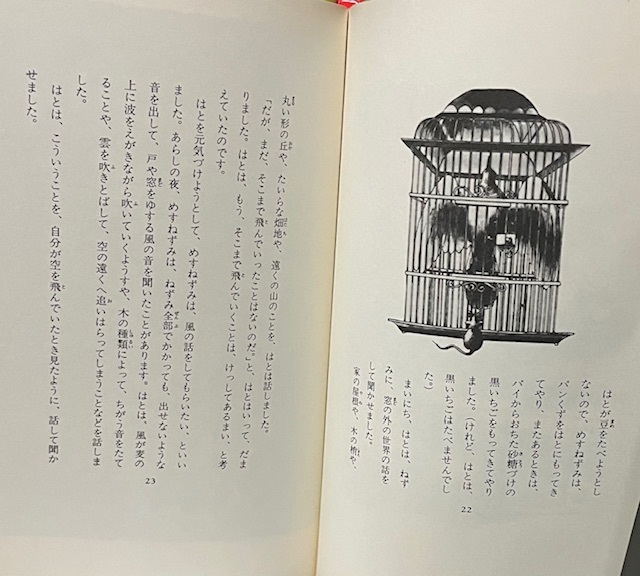 はとが豆をたべようとし
ないので、めすねずみは、
パンくずをはとにもってき
てやり、またあるときは、
パイからおちた砂糖づけの
黒いちごをもってきてやり
ました。（けれど、はとは、
黒いちごはたべませんでし
た。）
まいにち、はとは、ねず
みに、窓の外の世界の話を
して聞かせました。
家の屋根や、木の梢や、
22
丸い形の丘や、たいらな畑地や、遠くの山のことを、はとは話しました。
「だが、まだ、そこまで飛んでいったことはないのだ。」と、はとはいって、だま
りました。はとは、もう、そこまで飛んでいくことは、けっしてあるまい、と考
えていたのです。
はとを元気づけようとして、めすねずみは、風の話をしてもらいたい、といい
ました。あらしの夜、めすねずみは、ねずみ全部でかかっても、出せないような
音を出して、戸や窓をゆする風の音を聞いたことがあります。はとは、風が麦の
上に波をえがきながら吹いていくようすや、木の種類によって、ちがう音をたて
ることや、雲を吹きとばして、空の遠くへ追いはらってしまうことなどを話しま
した。
はとは、こういうことを、自分が空を飛んでいたとき見たように、話して聞か
せました。
23